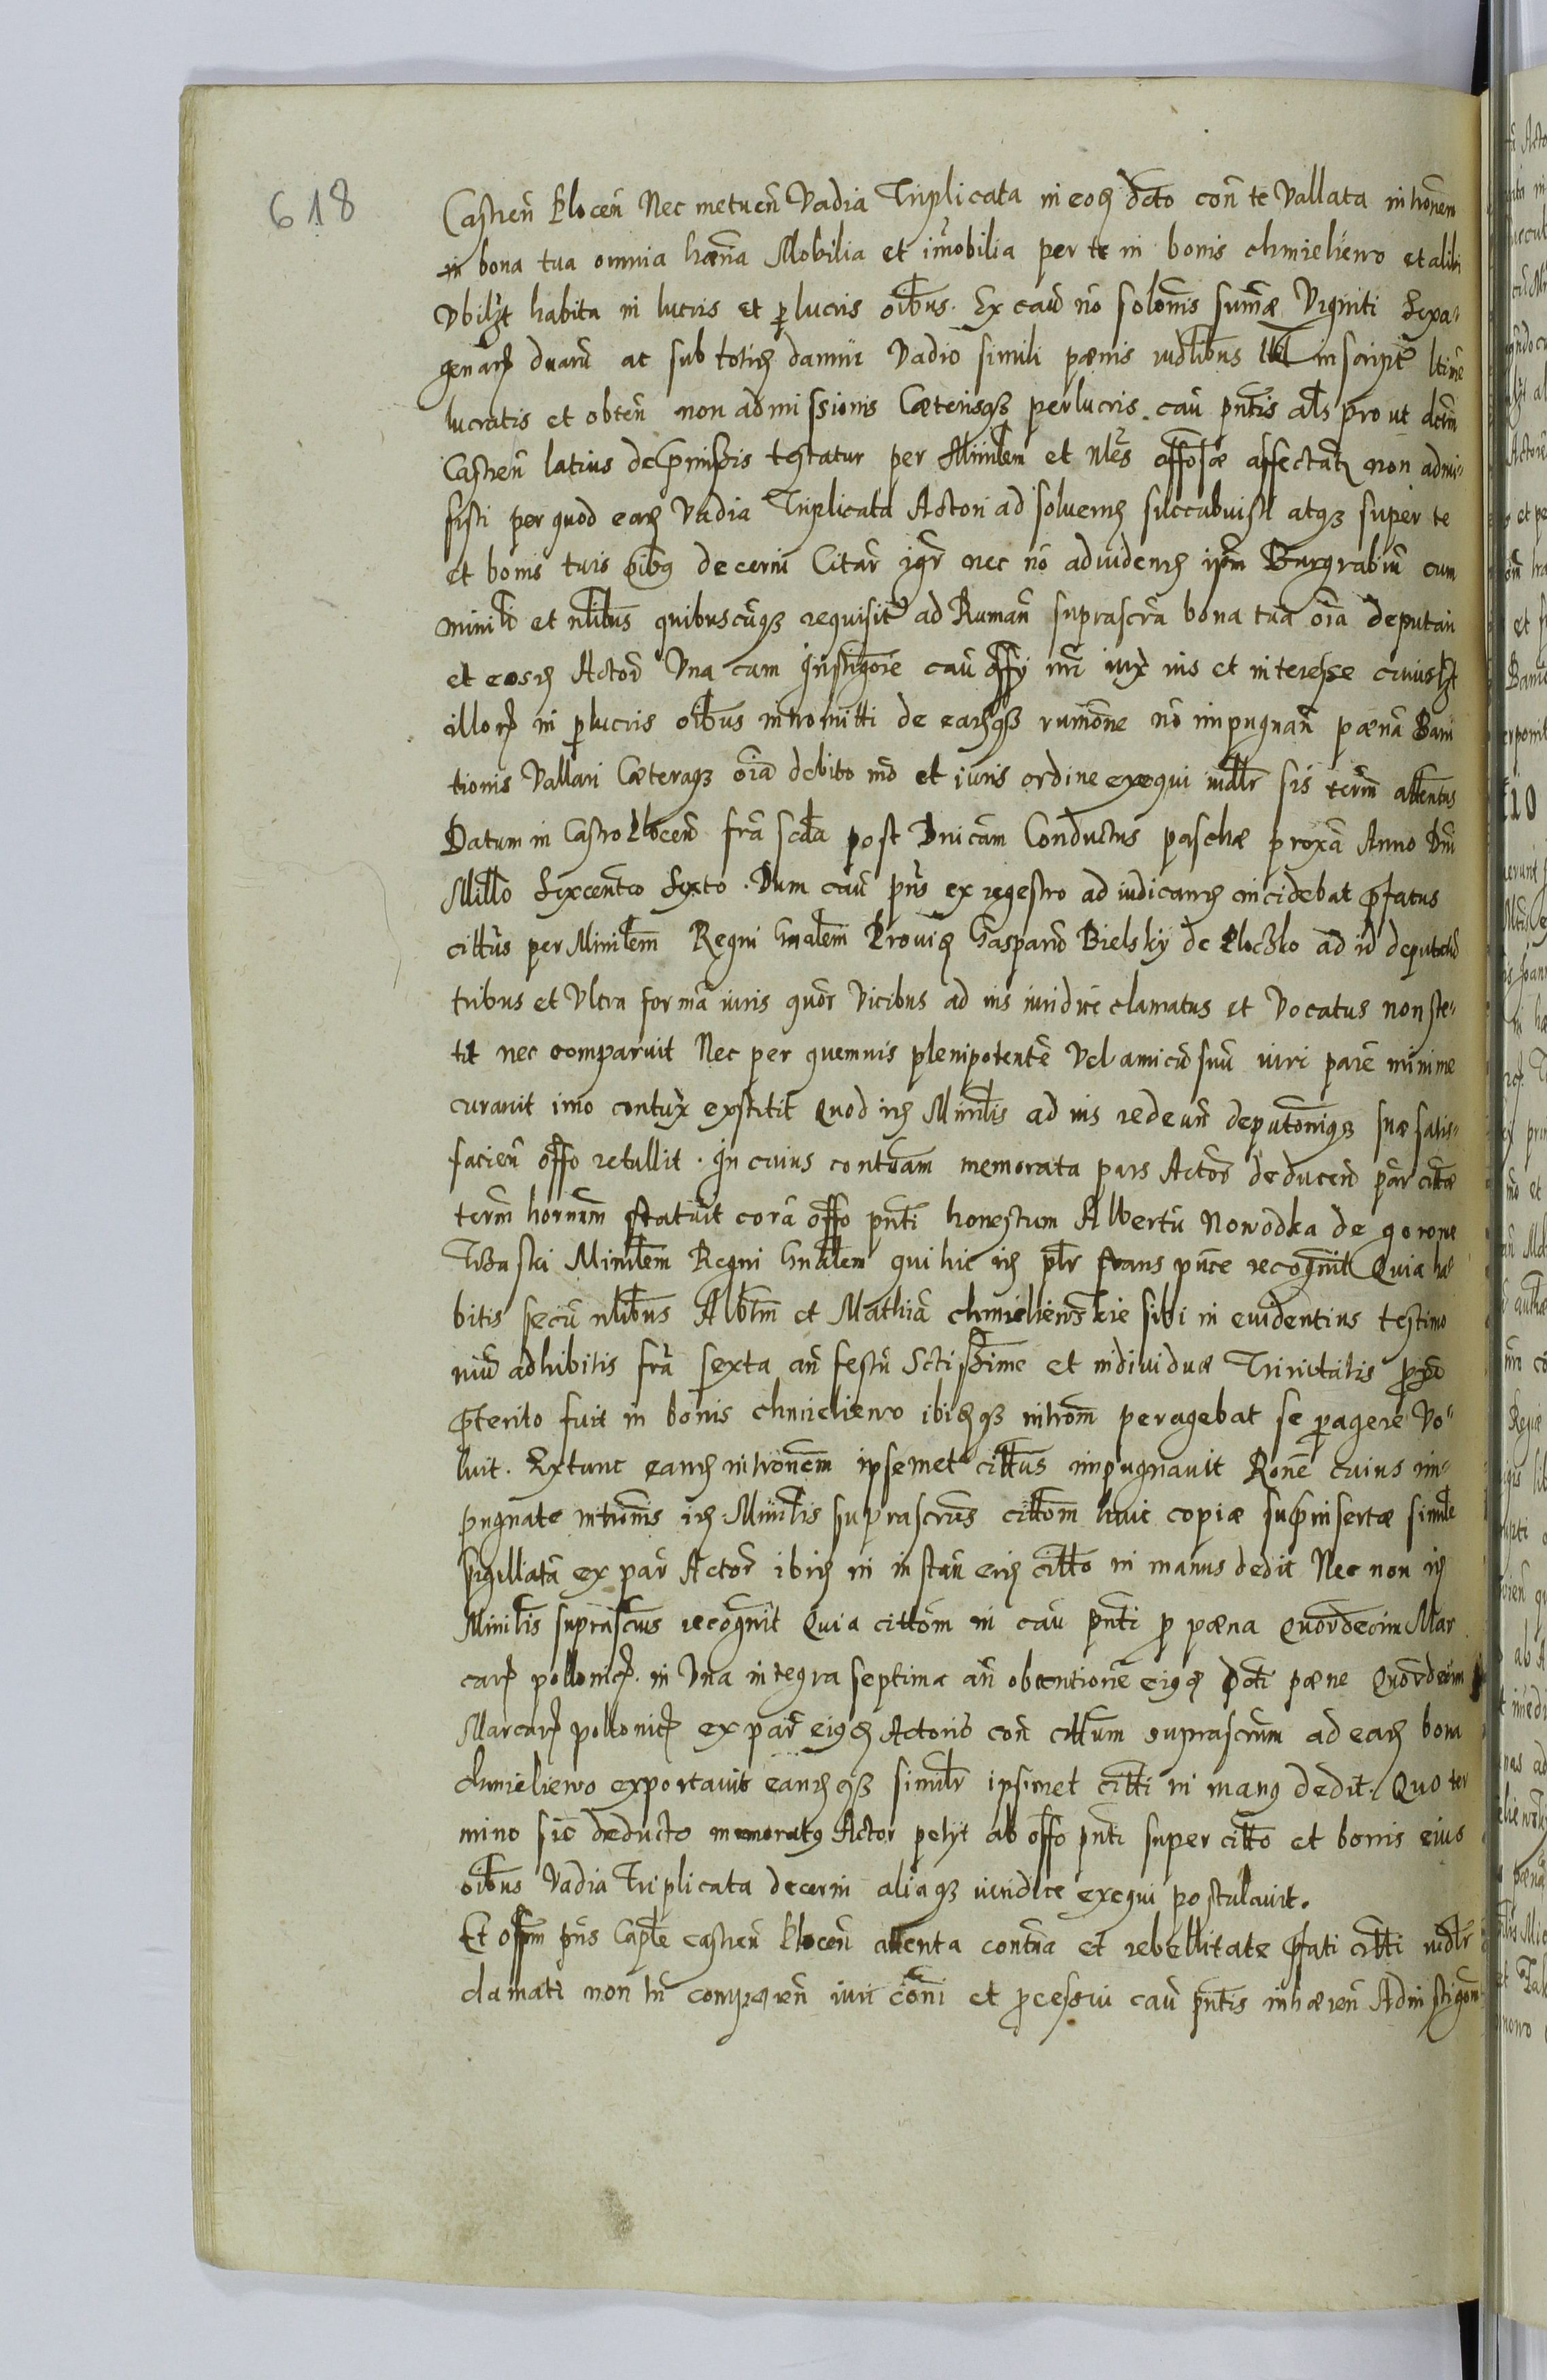 618
Castren̄ Plocen̄ Nec metuen̄ Vadia Triplicata in eod dcto con̄ te Vallata intronem
in bona tua omnia hæna Mobilia et im̄obilia per te in bonis chmieliewo et alibi
Vbilȝt habita in lucris et perlucris oībus. Ex cau no solonis sum̄æ Viginti Sexa-
genar duar ac sub totid damni Vadio simili pænis iudlibus inscript ltime
lucratis et obten̄ non admissionis Cæterisqȝ perlucris cau pn̄tis als prout acm̄
Castren̄ latius de præmissis testatur per Minilem et Nles offosæ affectat non admi-
sisti per quod ead Vadia Triplicata Actori ad soluend succubuisti atqȝ super te
et bonis tuis oibg decerni Citar igr nec no ad uidend ipm Burgrabiu cum
minili et nlibus quibuscuqȝ requisit ad Ruman̄ suprascra bona tua oia deputari
et eosd Actor Vna cum Instigore cau offy nri iux ius et interesse cuiuslȝt
illor in perlucris oibus intromitti de eadqȝ rumone no impugnan̄ pæna Bani
tionis Vallari Cæteraqȝ oia debito mo et iuris ordine exequi iudlr sis term̄ attentus
Datum in Castro Plocen̄ fra scda post Dnicam Conductus paschæ proxa Anno Dni
Millo Sexcento Sexto. Dum cau pn̄s ex regestro ad iudicand incidebat præfatus
cittus per Minilem Regni Gnalem Prouid Gasparu Bielsky de Ploczko ad id deputatu
tribus et Vltra forma iuris quor Vicibus ad ius iuridice clamatus et Vocatus non ste-
tit nec comparuit Nec per quemuis plenipotente Vel amicu suu iuri pare minime
curauit imo contux exstitit Quod id Minilis ad ius redeun̄ deputoniqȝ suæ satis-
facien̄ offo retullit. In cuius contuam memorata pars Actor deducen̄ par citæ
term̄ hornum statuit cora offo pn̄ti honestum Albertu Nowodka de gorone
Trzaski Minilem Regni Gnalem qui hic id plr stans pn̄ce recognit Quia ha-
bitis secu nlibus Albtm et Mathia chmieliewskie sibi in euidentius testimo
niu adhibitis fra sexta an̄ festu Sctissimæ et indiuiduæ Trinitatis prox
præterito fuit in bonis chmieliewo ibidqȝ introm peragebat se peragere Vo-
luit. Extunc eand intronem ipsemet cittus impugnauit Rone cuius im-
pugnate intronis id Minilis suprascrus cittom huic copiæ suprainsertæ simile
sigillata ex par Actor ibid in instan̄ eid citto in manus dedit Nec non id
Minilis suprascrus recognit Quia cittom in cau pn̄ti pro pæna Quordecim Mar
car pollonic in Vna integra septima an̄ obtentione eigd dcti pæne Quordecim
Marcar pollonic ex par eigd Actoris con̄ cittum suprascrum ad ead bona
chmieliewo exportauit eandqȝ similr ipsimet citti in mang dedit. Quo ter
mino sic deducto memoratg Actor petyt ab offo pn̄ti super citto et bonis eius
oibus Vadia Triplicata decerni aliaqȝ iuridice exequi postulauit.
Et offm pn̄s Caple castren̄ Plocen̄ attenta contua et rebellitate præfati citti iudlr
clamati non tn̄ comparen̄ iuri coni et processui cau pn̄tis inhæren̄ Ad instigom